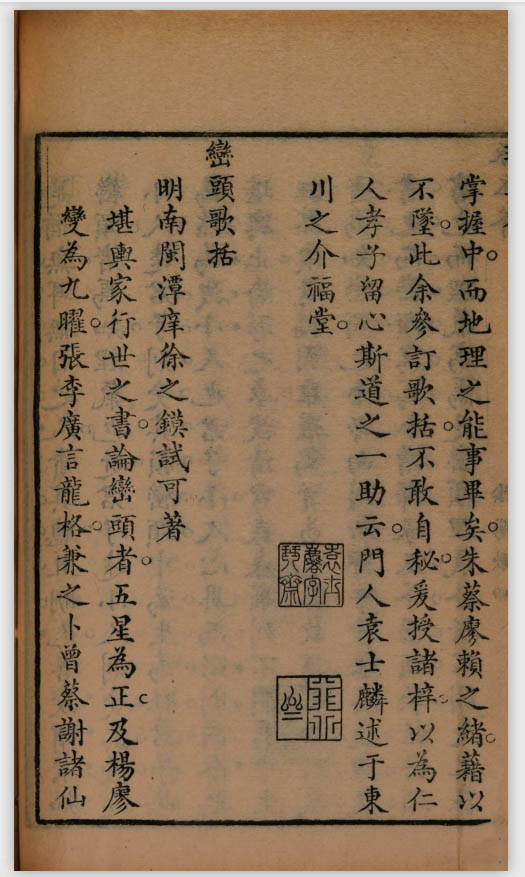 掌握中。而地理之能事畢矣。朱蔡廖賴之緒。藉以
不墜。此余參訂歌括。不敢自秘。爰授諸梓。以為仁
人孝子留心斯道之一助云。門人袁士麟述于東
川之介福堂。
巒頭歌括
明南閩潭庠徐之鏌試可著
堪輿家行世之書。論巒頭者。五星為正。及楊廖
變為九曜。張李廣言龍格。兼之卜曾蔡謝諸仙